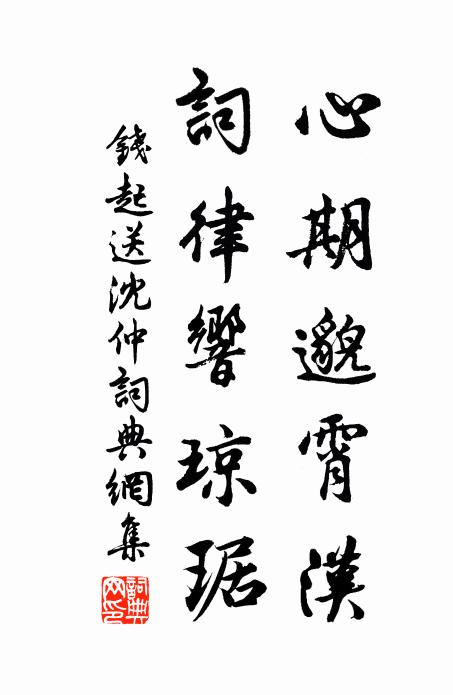 心期邈霄漢
詞律響琼琚
錢起送沈仲詞典網集
詞典网印